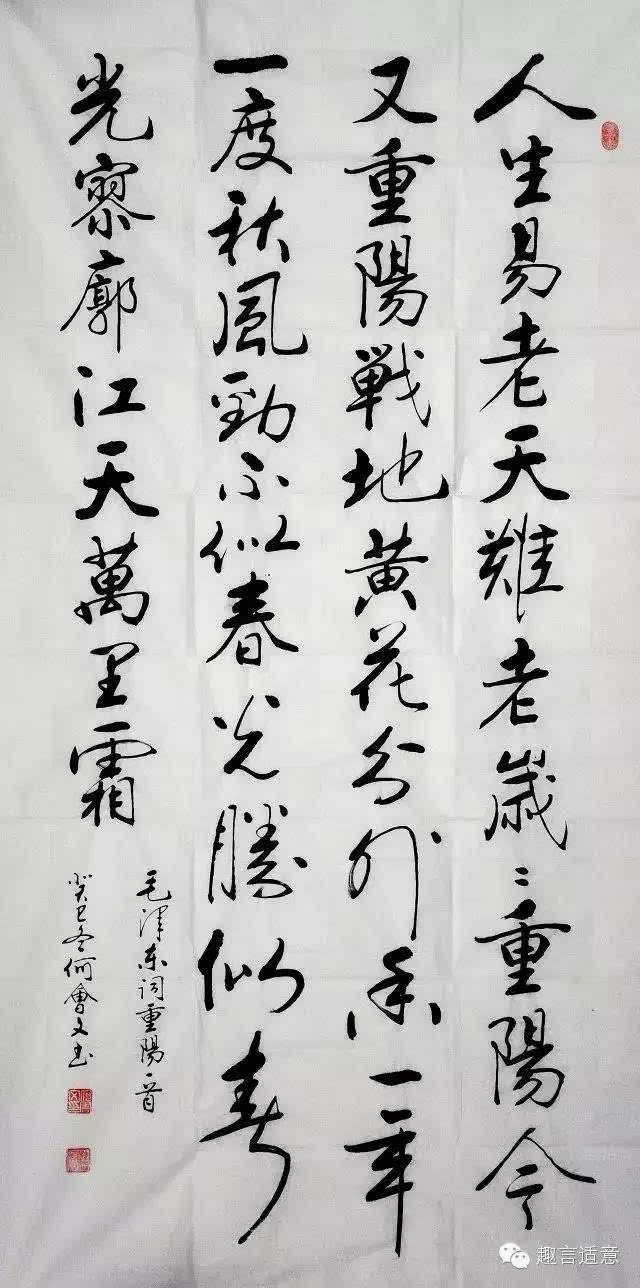 人生易老天難老歲〻重陽今
又重陽戰地黃花分外香一年
一度秋風勁不似春光勝似春
光寥廓江天萬里霜
毛澤東詞重陽一首
癸巳冬何會文書
趣言适意